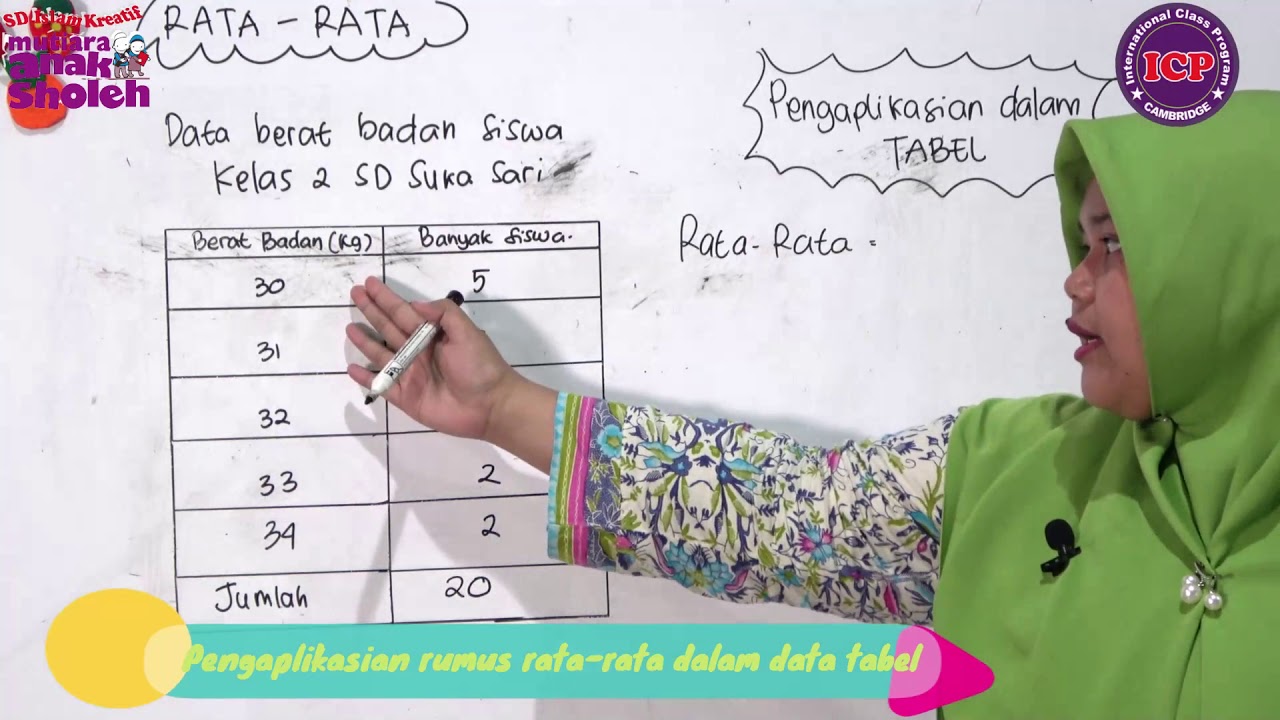 SD Islam Kreatif
mutiara
anak
Sholeh
RATA - RATA
International Class Program
ICP
CAMBRIDGE
Pengaplikasian dalam
TABEL
Data berat badan siswa
Kelas 2 SD Suka Sari
Berat Badan (Kg) Banyak Siswa.
30 5
31
32
33 2
34 2
Jumlah 20
Rata-Rata =
Pengaplikasian rumus rata-rata dalam data tabel